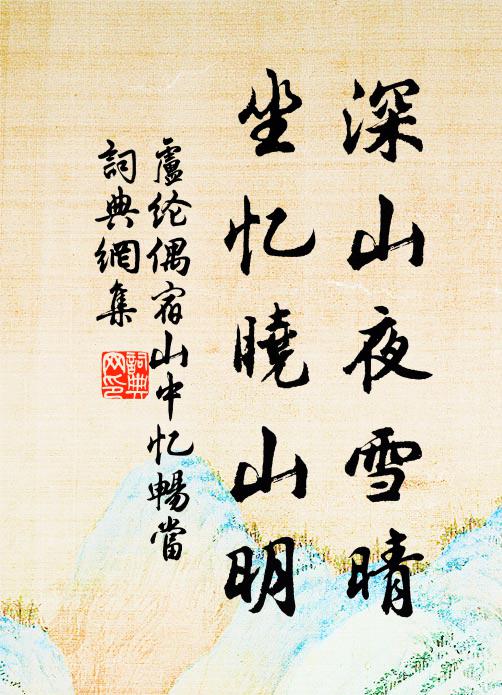 深山夜雪晴
坐忆曉山明
盧纶偶宿山中忆暢當
詞典網集
詞典网印